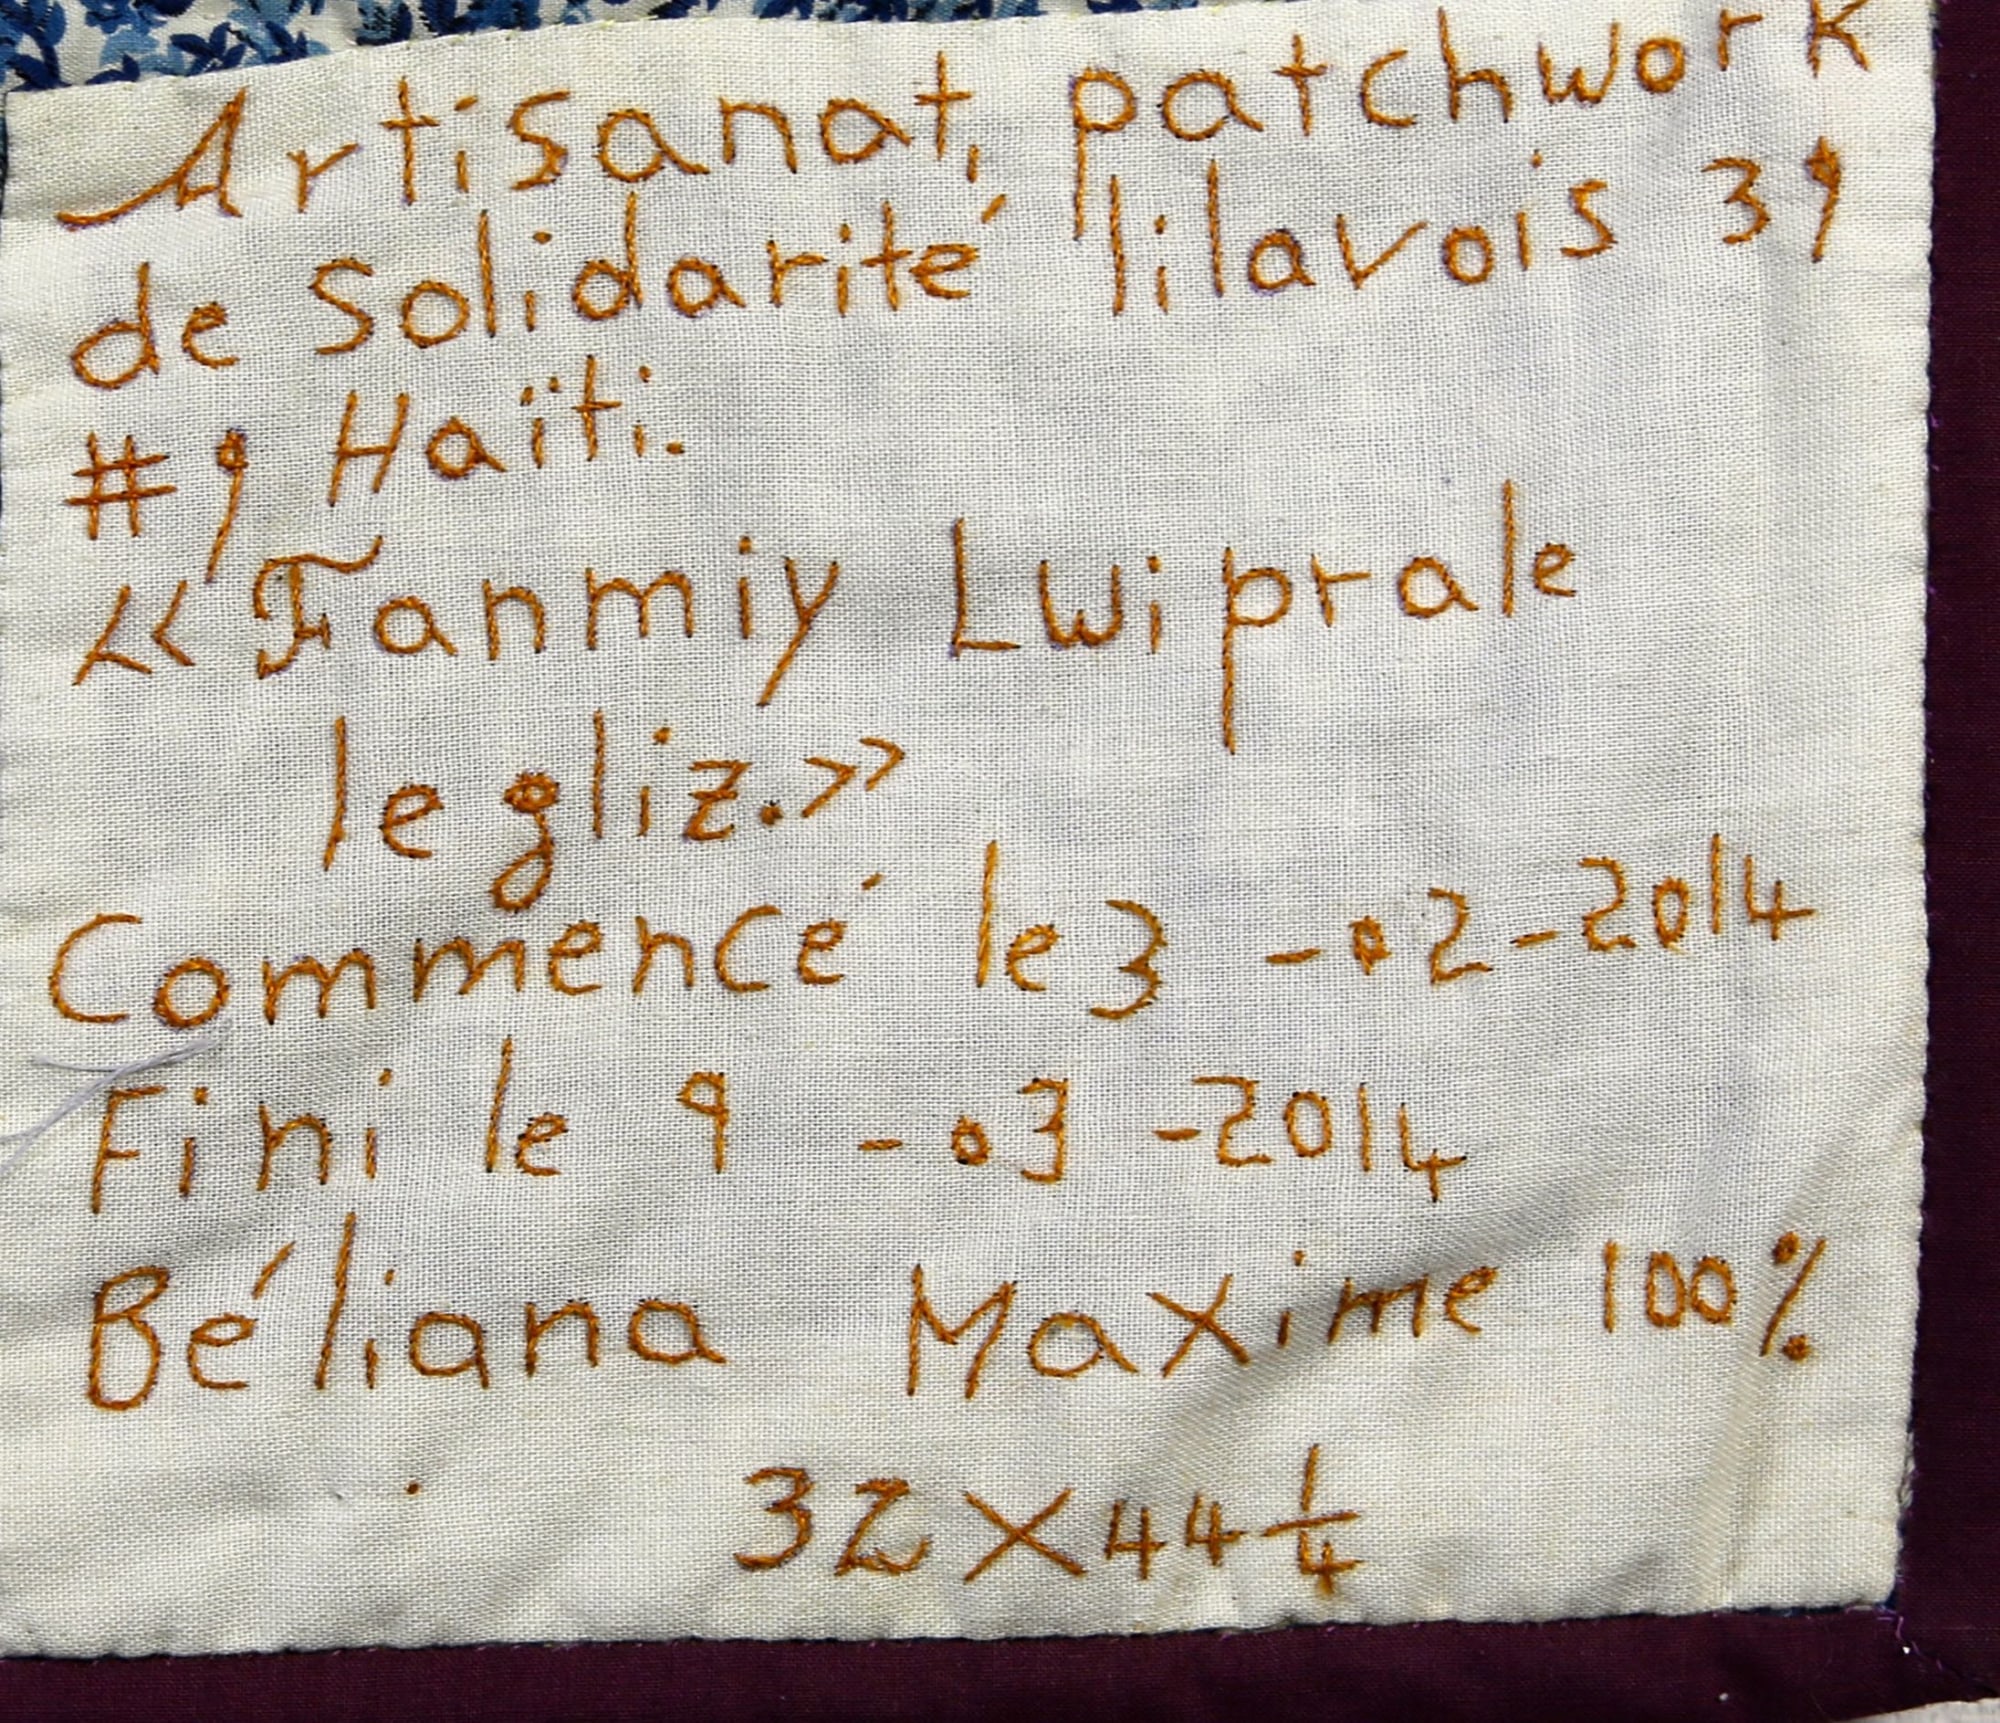 Artisanat, patchwork
de Solidarité lilavois 39
#9 Haïti.
<< Fanmiy Lwi prale
legliz.>>
Commencé le 3 -02-2014
Fini le 9 -03 -2014
Béliana Maxime 100%
32 X 44 1/4